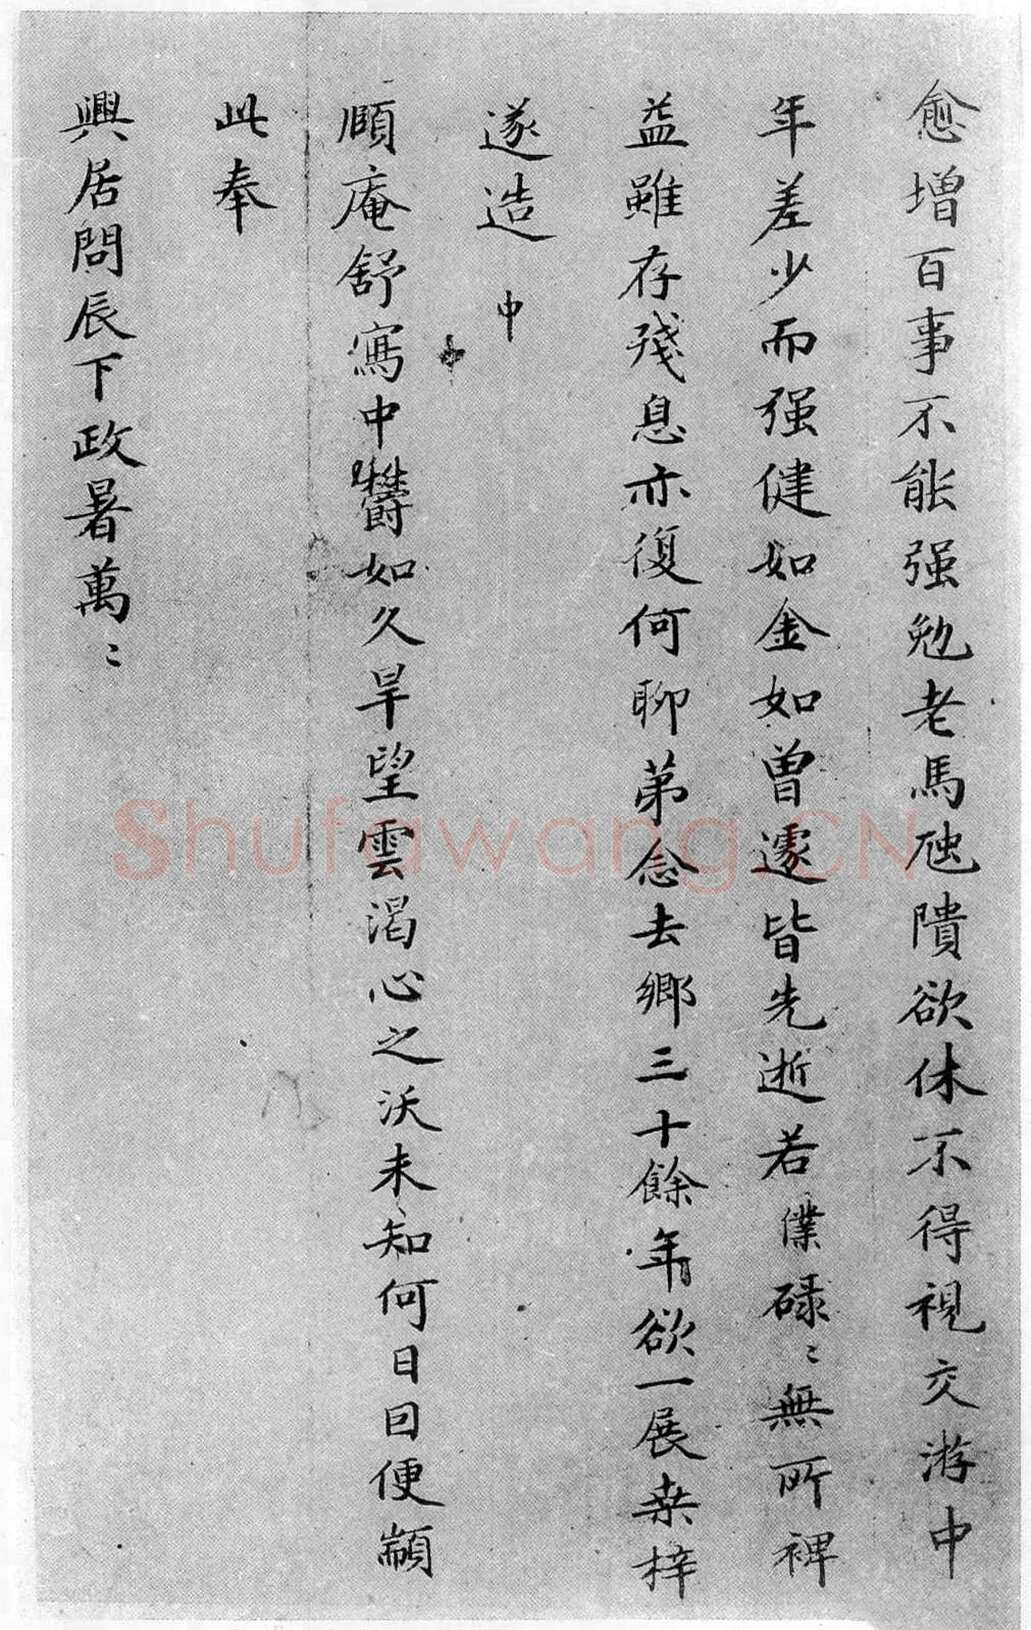 愈增百事不能强勉老馬虺隤欲休不得視交游中
年差少而强健如金如曾遽皆先逝若僕碌〻無所裨
益雖存殘息亦復何聊弟念去鄉三十餘年欲一展桒梓
遂造中
頤庵舒寫中欝如久旱望雲渴心之沃未知何日回便顓
此奉
興居問辰下政暑萬〻
Shufawang.CN